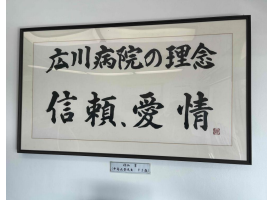 広川病院の理念
信頼、愛情